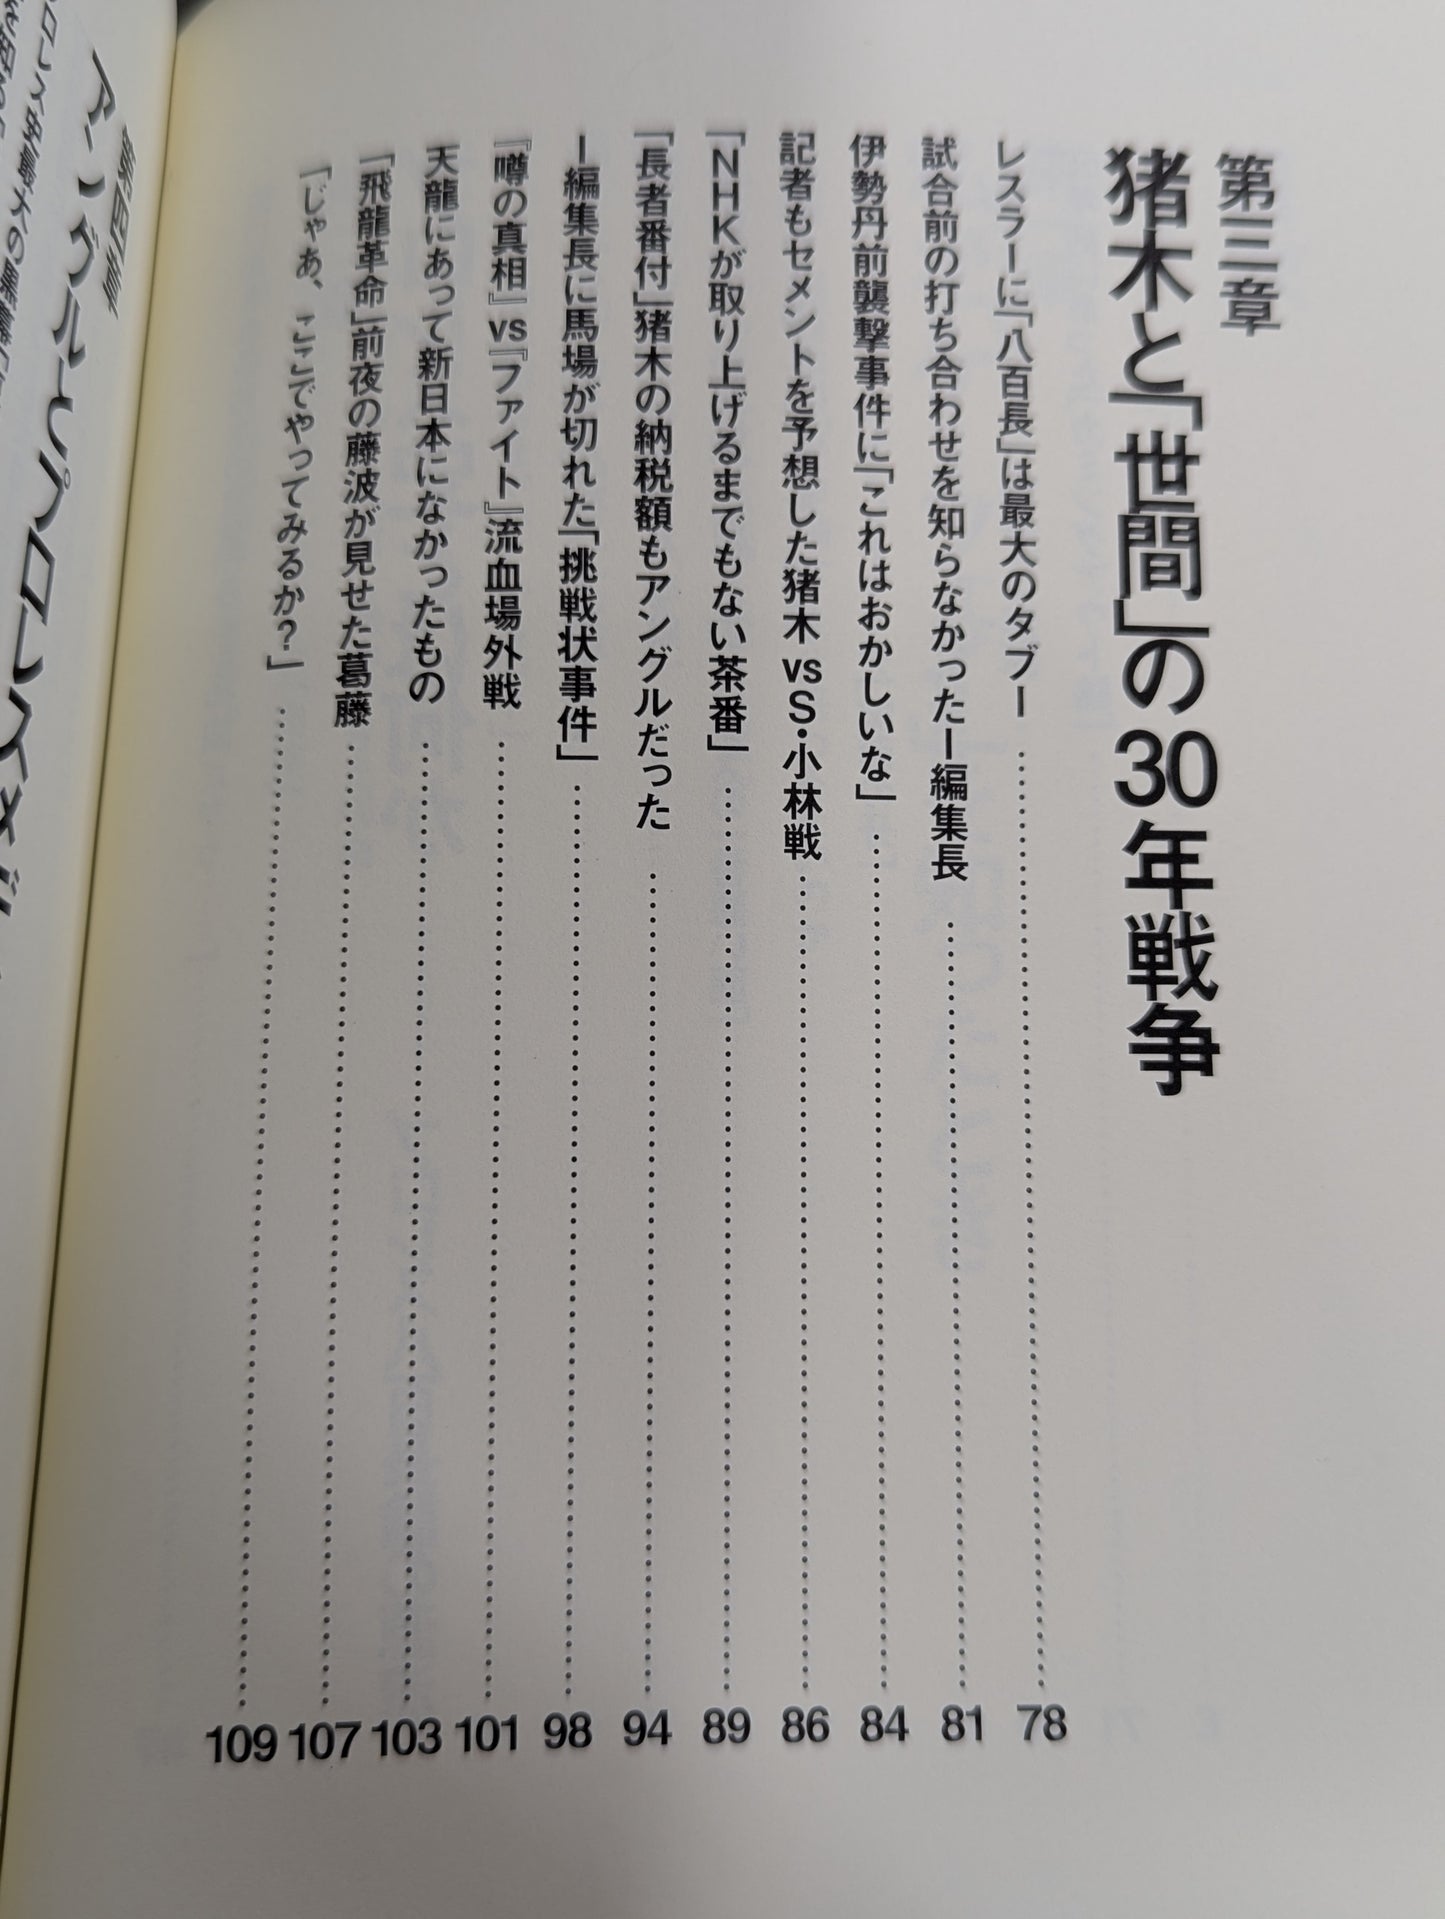 第三章
猪木と「世間」の30年戦争
レスラーに「八百長」は最大のタブー……78
試合前の打ち合わせを知らなかったI編集長……81
伊勢丹前襲撃事件に「これはおかしいな」……84
記者もセメントを予想した猪木vsS・小林戦……86
「NHKが取り上げるまでもない茶番」……89
「長者番付」猪木の納税額もアングルだった……94
I編集長に馬場が切れた「挑戦状事件」……98
『噂の真相』vs『ファイト』流血場外戦……101
天龍にあって新日本になかったもの……103
「飛龍革命」前夜の藤波が見せた葛藤……107
「じゃあ、ここでやってみるか？」……109
第四章
アングルとプロレスメディ